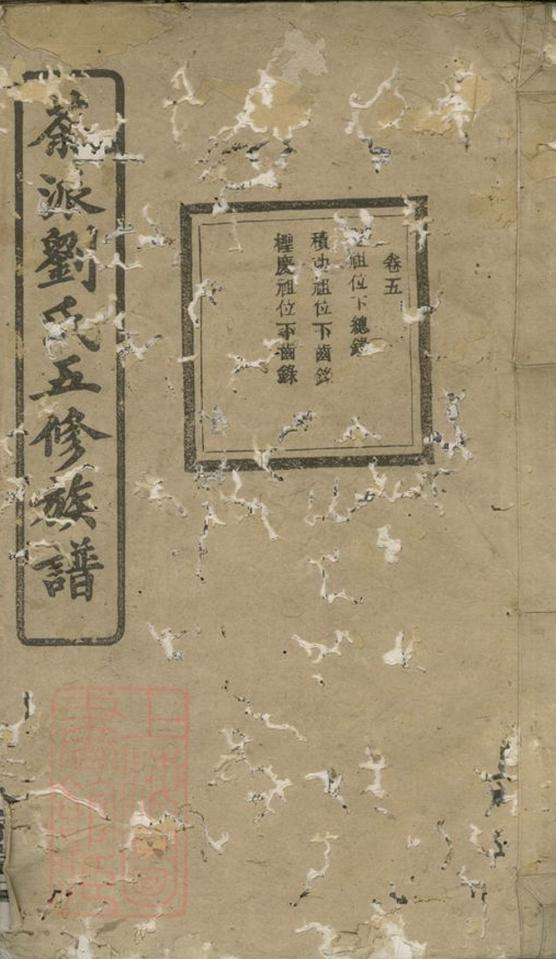 卷五
祖位下總錄
積功祖位下齒錄
樫慶祖位下齒錄
茶派劉氏五修族譜